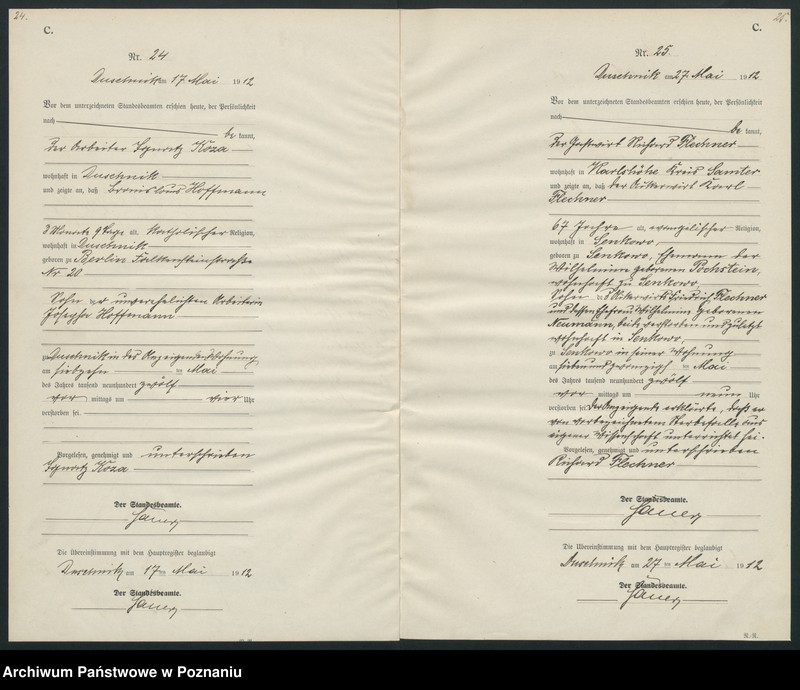 24.
C.
Nr. 24
Duschnik am 17 Mai 1912
Vor dem unterzeichneten Standesbeamten erschien heute, der Persönlichkeit
nach
be kannt,
Der Arbeiter Ignatz Koza
wohnhaft in Duschnik
und zeigte an, daß Bronislaus Hoffmann
3 Monate 9 Tage alt, katholischer Religion,
wohnhaft in Duschnik
geboren zu Berlin Falkensteinstraße
Nr. 20
Sohn der unverehelichten Arbeiterin
Josepha Hoffmann
zu Duschnik in des Anzeigenden Wohnung
am siebzehn ten Mai
des Jahres tausend neunhundert zwölf
vor mittags um vier Uhr
verstorben sei.
Vorgelesen, genehmigt und unterschrieben
Ignatz Koza
Der Standesbeamte.
Die Übereinstimmung mit dem Hauptregister beglaubigt
Duschnik am 17 ten Mai 1912
Der Standesbeamte.
25.
C.
Nr. 25.
Duschnik am 27. Mai 1912
Vor dem unterzeichneten Standesbeamten erschien heute, der Persönlichkeit
nach
be kannt,
Der Gastwirt Richard Flechner
wohnhaft in Karlshöhe Kreis Samter
und zeigte an, daß der Ackerwirt Karl
Flechner
67 Jahre alt, evangelischer Religion,
wohnhaft in Senkowo,
geboren zu Senkowo, Ehemann der
Wilhelmine geborenen Pochstein,
wohnhaft zu Senkowo
Sohn des Ackerwirts Friedrich Flechner
und dessen Ehefrau Wilhelmine geborenen
Neumann, beide verstorben und zuletzt
wohnhaft in Senkowo,
zu Senkowo in seiner Wohnung
am siebenundzwanzigsten Mai
des Jahres tausend neunhundert zwölf
vor mittags um neun Uhr
verstorben sei. Der Anzeigende erklärte, daß er
von vorbezeichnetem Sterbefalle aus
eigener Wissenschaft unterrichtet sei.
Vorgelesen, genehmigt und unterschrieben
Richard Flechner
Der Standesbeamte.
Die Übereinstimmung mit dem Hauptregister beglaubigt
Duschnik am 27 ten Mai 1912
Der Standesbeamte.
Archiwum Państwowe w Poznaniu